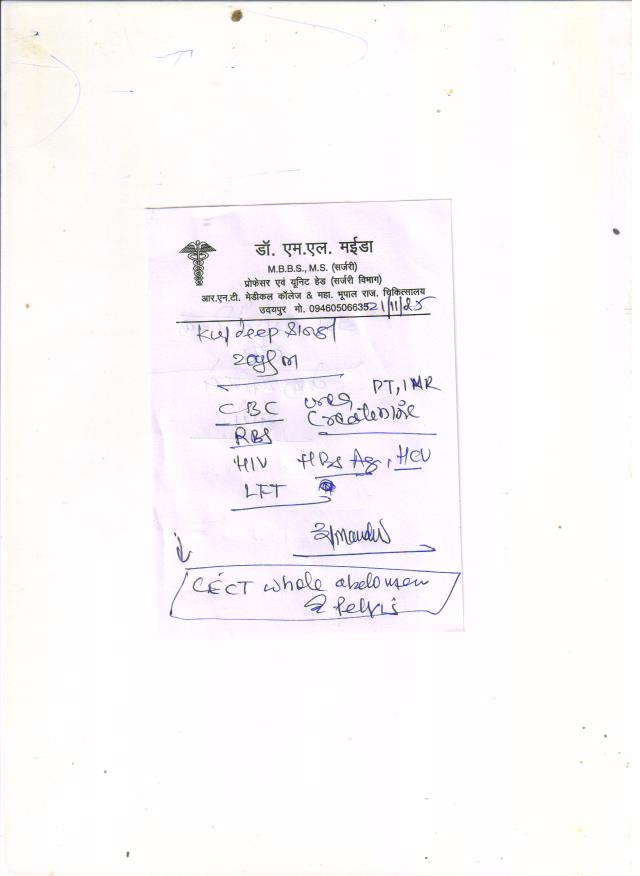 डॉ. एम.एल. मईडा
M.B.B.S., M.S. (सर्जरी)
प्रोफेसर एवं यूनिट हेड (सर्जरी विभाग)
आर.एन.टी. मेडीकल कॉलेज & महा. भूपाल राज. चिकित्सालय
उदयपुर मो. 09460506635
21/11/25
Kuldeep
20y/m
CBC urea, PT, INR
Creatinine
RBS
HIV HBsAg, HCV
LFT
CECT whole abdomen
& Pelvis